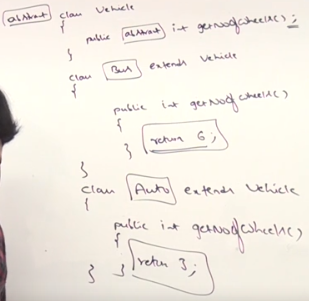 abstract class Vehicle
{
public abstract int getNoofWheels();
}
class Bus extends Vehicle
{
public int getNoofWheels()
{
return 6;
}
}
class Auto extends Vehicle
{
public int getNoofWheels()
{
return 3;
} }